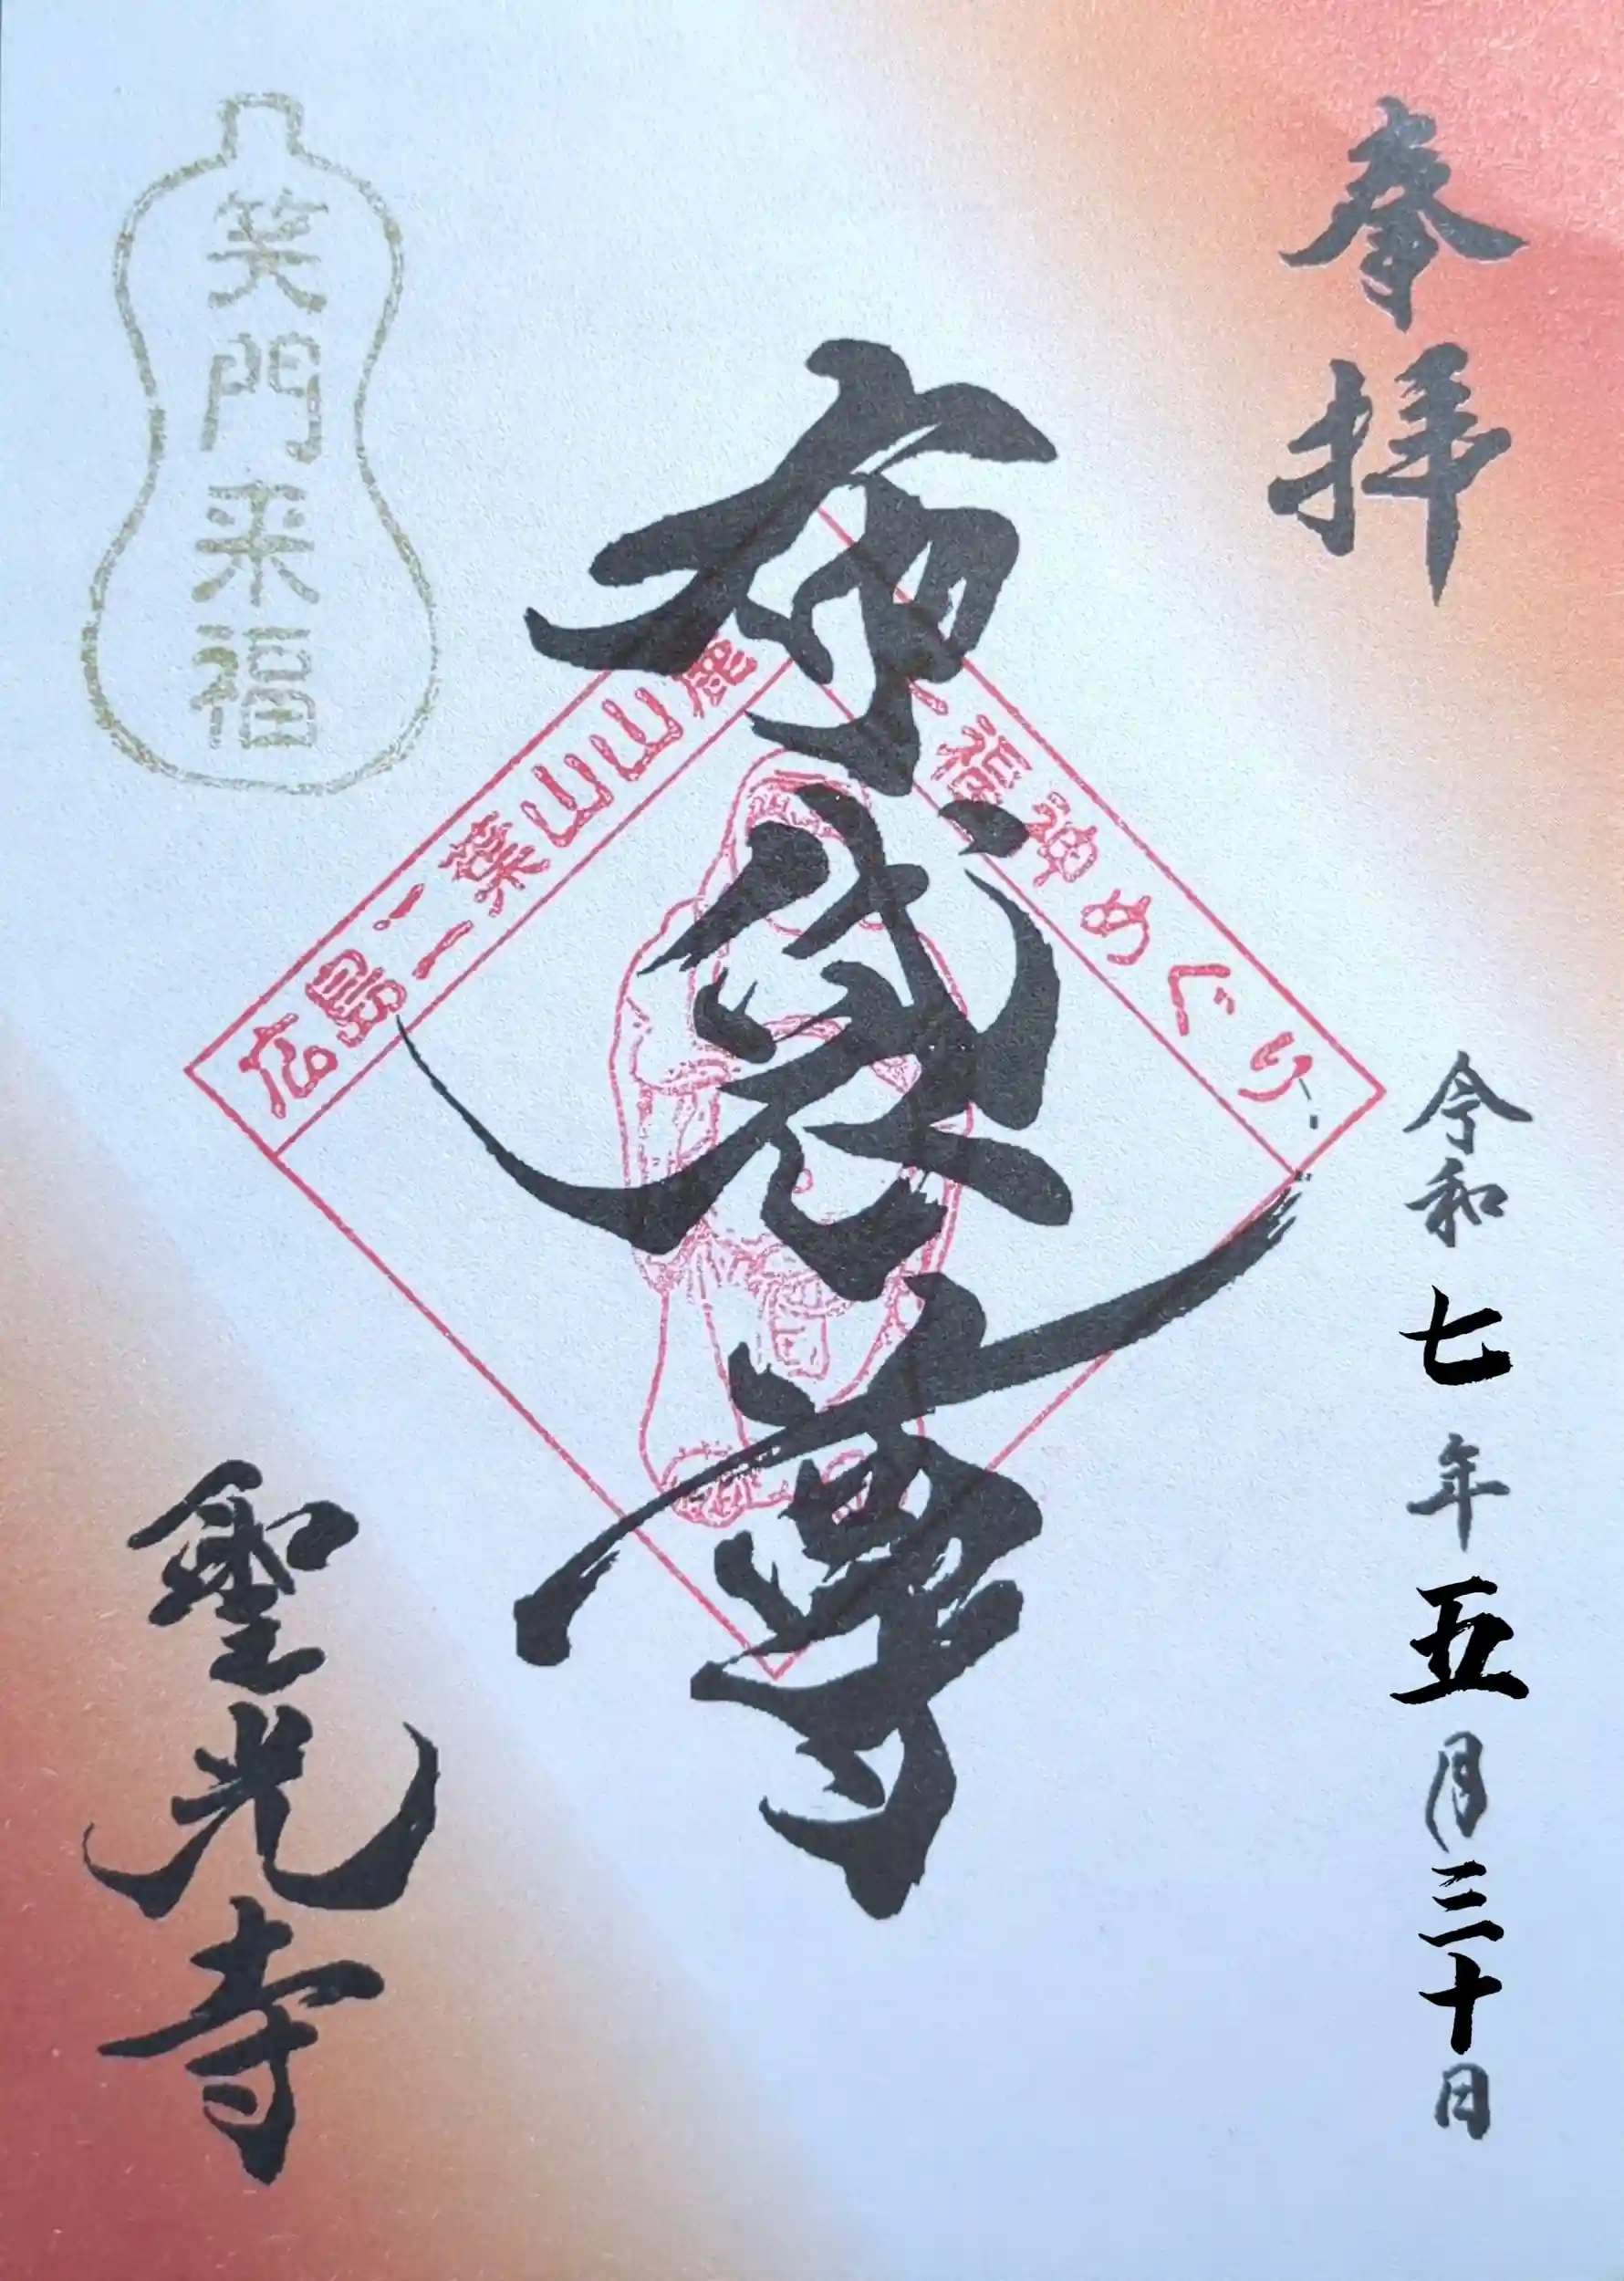 奉拝
令和七年五月三十日
布袋尊
広島二葉山山麓
福神めぐり
笑門来福
聖光寺